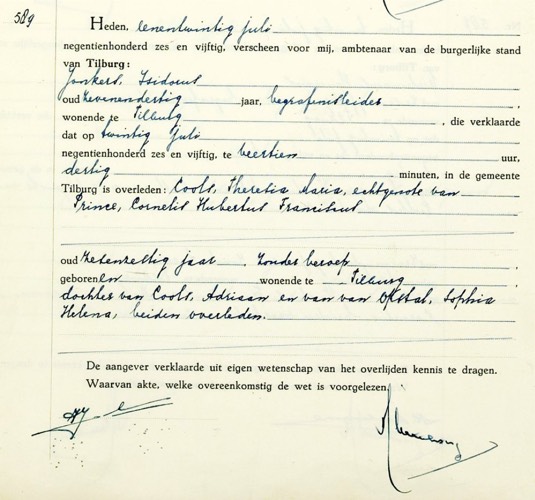 589
Heden, eenentwintig juli
negentienhonderd zes en vijftig, verscheen voor mij, ambtenaar van de burgerlijke stand
van Tilburg:
Jonkers, Isidorus
oud zevenendertig jaar, begrafenisleider,
wonende te Tilburg, die verklaarde
dat op twintig juli
negentienhonderd zes en vijftig, te veertien uur,
dertig minuten, in de gemeente
Tilburg is overleden: Cools, Theresia Maria, echtgenote van
Prince, Cornelis Hubertus Franciscus
oud zesenzestig jaar, zonder beroep,
geboren en wonende te Tilburg,
dochter van Cools, Adriaan en van van Opstal, Sophia
Helena, beiden overleden.
De aangever verklaarde uit eigen wetenschap van het overlijden kennis te dragen.
Waarvan akte, welke overeenkomstig de wet is voorgelezen.